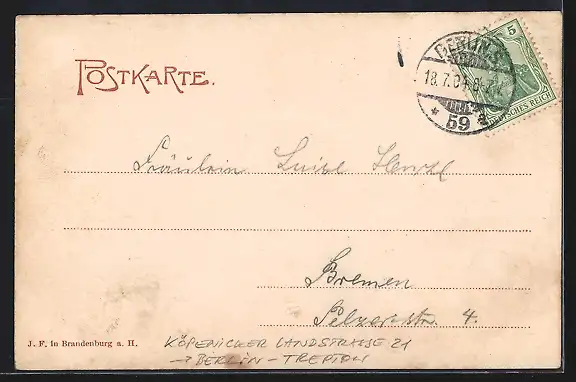 POSTKARTE.
BERLIN S
18.7.04.
* 59 a
5
DEUTSCHES REICH
Fräulein Luise
Bremen
Pelzerstr. 4.
J. F. in Brandenburg a. H.
KÖPENICKER LANDSTRASSE 21
→ BERLIN - TREPTOW